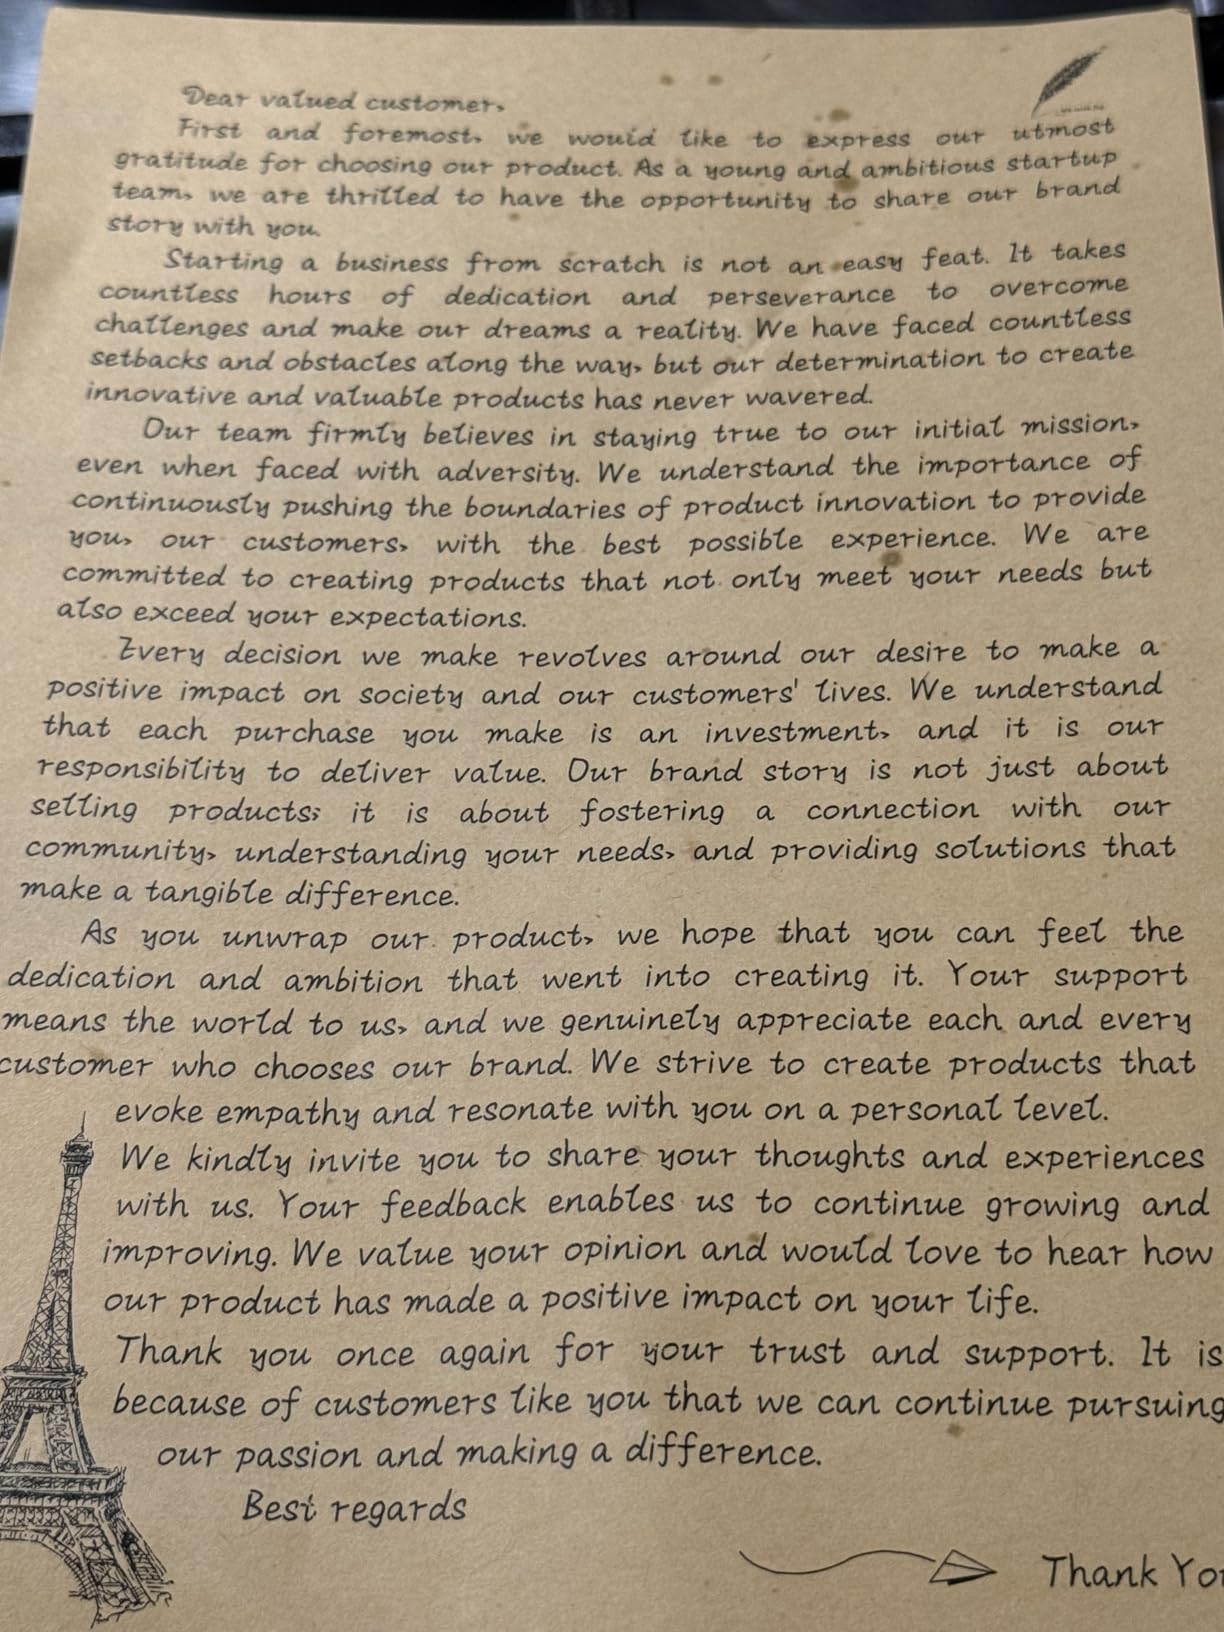 Dear valued customer,
First and foremost, we would like to express our utmost
gratitude for choosing our product. As a young and ambitious startup
team, we are thrilled to have the opportunity to share our brand
story with you.
Starting a business from scratch is not an easy feat. It takes
countless hours of dedication and perseverance to overcome
challenges and make our dreams a reality. We have faced countless
setbacks and obstacles along the way, but our determination to create
innovative and valuable products has never wavered.
Our team firmly believes in staying true to our initial mission,
even when faced with adversity. We understand the importance of
continuously pushing the boundaries of product innovation to provide
you, our customers, with the best possible experience. We are
committed to creating products that not only meet your needs but
also exceed your expectations.
Every decision we make revolves around our desire to make a
positive impact on society and our customers' lives. We understand
that each purchase you make is an investment, and it is our
responsibility to deliver value. Our brand story is not just about
selling products; it is about fostering a connection with our
community, understanding your needs, and providing solutions that
make a tangible difference.
As you unwrap our product, we hope that you can feel the
dedication and ambition that went into creating it. Your support
means the world to us, and we genuinely appreciate each and every
customer who chooses our brand. We strive to create products that
evoke empathy and resonate with you on a personal level.
We kindly invite you to share your thoughts and experiences
with us. Your feedback enables us to continue growing and
improving. We value your opinion and would love to hear how
our product has made a positive impact on your life.
Thank you once again for your trust and support. It is
because of customers like you that we can continue pursuing
our passion and making a difference.
Best regards
Thank You